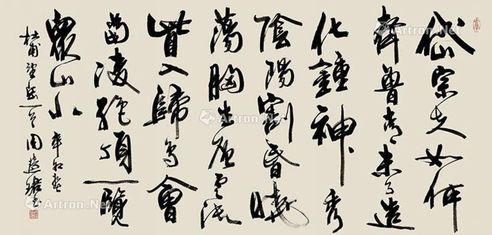 岱宗夫如何
齊魯青未了造
化鍾神秀
陰陽割昏曉
蕩胸生層雲決
眥入歸鳥會
當凌絕頂一覽
眾山小
杜甫望嶽一首周
Artron.Net
Artron.Net
Artron.Net